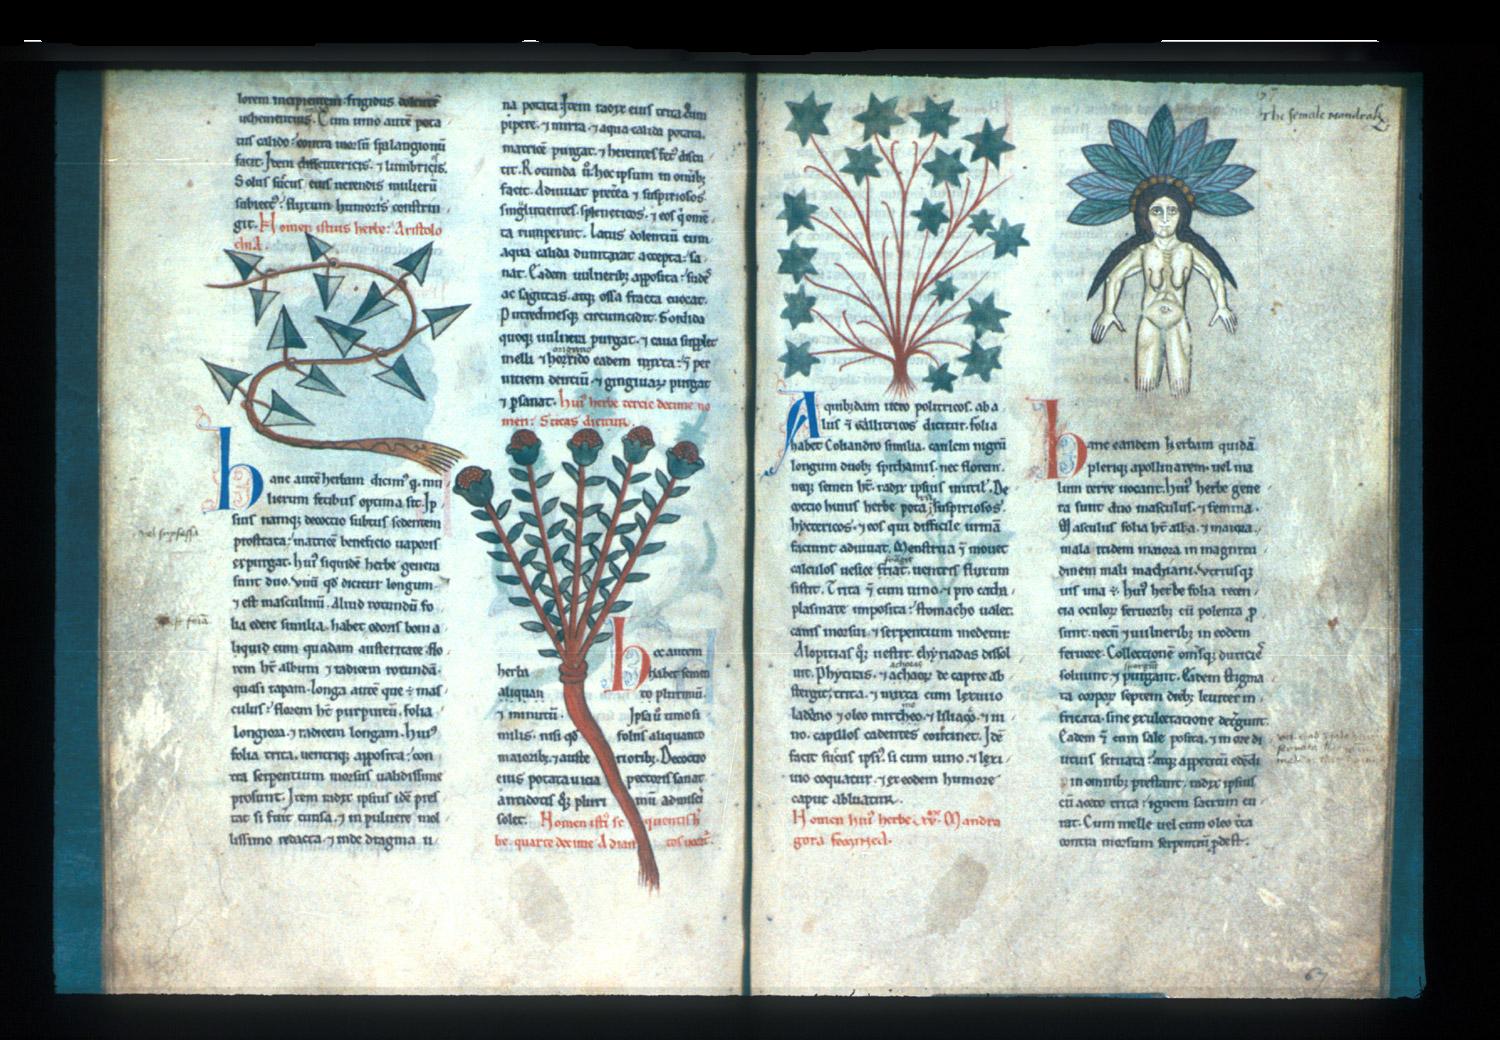 lorem incipientem frigidus dolore
uehementius. Cum uino autē pota
eius calido: contra morsū spalangionū
facit. Item dissentericis. ⁊ lumbricis.
Solus sucus eius uexendis mulierū
subiect᷒: fluxum humoris constrin
git. Nomen istius herbe: Aristolo
chia.
hanc autē herbam dicim᷒ q. mu
lierum fetibus optima sit. Ip
sius namq; decoctio subtus sedentem
prostrata: matricē beneficio uaporis
expurgat. hui᷒ siquidē herbe genera
sunt duo. Vnū qd dicitur longum.
⁊ est masculinū. Aliud rotundū fo
lia edere similia. habet odoris boni a
liquid cum quadam austeritate. flo
rem hēt album ⁊ radicem rotundā.
quasi rapam. longa autē que ÷ mas
culus: florem hēt purpureū. folia
longiora. ⁊ radicem longam. hui᷒
folia trita. uentriq; apposita: con
tra serpentium morsus ualidissime
prosunt. Item radix ipsius idē pres
tat si fuit tunsa. ⁊ in puluere mol
lissimo redacta. ⁊ inde dragma ui
na potata. Item radix eius trita cum
pipere. ⁊ mirra. ⁊ aqua calida potata.
matricē purgat. ⁊ herentes fet᷒ discu
tit. Rotunda ū hoc ipsum in omib;
facit. Adiuuat pretea ⁊ suspiriosos.
singlutientes. spleneticos. ⁊ eos q̄
ta rumperint. Latus dolentiū cum
aqua calida dumtaxat accepta: sa
nat. Eadem uulnerib; apposita:
ac sagittas. atq; ossa fracta euocat.
Putredinesq; circumcidit. Sordida
quoq; uulnera purgat. ⁊ caua supplet
melli ⁊ eadem mixta: ⁊ per
uiciem dentiū. ⁊ gingiuar purgat
⁊ psanat. hui᷒ herbe tercie decime no
men: Sticas dicitur.
hec autem
herba habet semen
aliquan to plurimū.
⁊ minutū. Ipsa ū
milis. nisi qd foliis aliquanto
maiorib;. ⁊ auste riorib;. Decoctio
eius potata uicia pectoris sanat
antidotis q; pluri mū admisci
solet. Nomen isti᷒ se quentis h
be. quarte decime Adian tos uocat᷒.
Aquibdam uero politricos. ab a
liis ⁊ Gallitricos dicitur. folia
habet Coliandro similia. caulem nigrū
longum duob; spithamis. nec florem.
neq; semen hēt. radix ipsius inutil᷒. De
coctio huius herbe potā. suspiriosos.
hyctericos. ⁊ eos qui difficile urinā
faciunt adiuuat. Menstrua ⁊ mouet
calculos uesice friat. uentris fluxum
sistit. Trita ⁊ cum uino. ⁊ pro cata
plasmate imposita: stomacho ualet.
canis morsui. ⁊ serpentium medetur
Alopitias q; uestit. chyriadas dissol
uit. Phytiras. ⁊ achaor de capite ab
stergit. trita. ⁊ mixta cum lexiuio
ladano ⁊ oleo mirtheo. ⁊ Isiaqo. ⁊ ui
no. capillos cadentes continet. Idē
facit sucus ipsi᷒. si cum uino. ⁊ lexi
uio coquatur. ⁊ ex eodem humore
caput abluatur.
Nomen hui᷒ herbe. xv. Mandra
gora feminea.
The female Mandrak
hanc eandem herbam quidā
pleriq; apollinarem. uel ma
lum terre uocant. hui᷒ herbe gene
ra sunt duo masculus. ⁊ femina.
Masculus folia hēt alba. ⁊ maiora.
mala itidem maiora in magnitu
dinem mali machiani. Vtriusq;
uis una ÷. hui᷒ herbe folia recen
cia oculor feruorib; cū polenta p
sunt. necn̄ ⁊ uulnerib; in eodem
feruore. Collectionē omsq; duricies
soluunt ⁊ purgant. Eadem stigma
ta corpor septem dieb; leuiter in
fricata. sine exulceratione detgunt.
Eadem ⁊ cum sale posita. ⁊ in ore di
utius seruata: atq; appetitū edēdi
in omnib; prestant. radix ipsius
cū aceto trita: ignem sacrum cu
rat. Cum melle uel cum oleo t̄ta
contra morsum serpentiū pdest.
67